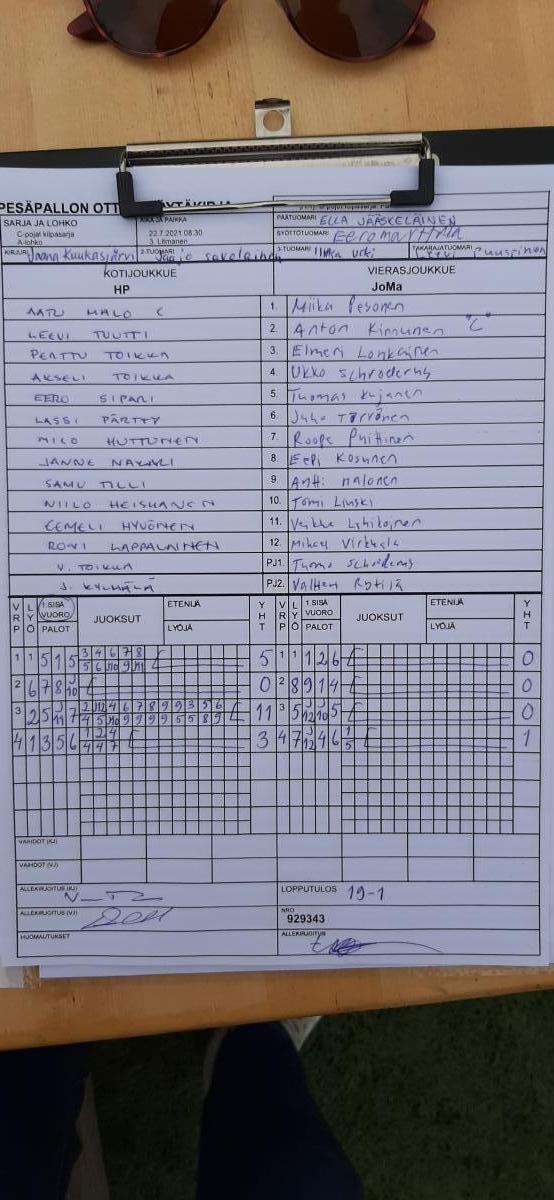 PESÄPALLON OTT
SARJA JA LOHKO
C-pojat kilpasarja
A-lohko
AIKA JA PAIKKA
22.7.2021 08:30
3. Litmanen
PÄÄTUOMARI ELLA JÄÄSKELÄINEN
SYÖTTÖTUOMARI Eero Marttila
KIRJURI Jaana Kuukasjärvi
2-TUOMARI Jaajo Savolainen
3-TUOMARI Ilkka
TAKARAJATUOMARI Puustinen
KOTIJOUKKUE
HP
VIERASJOUKKUE
JoMa
AATU MALO C 1. Miika Pesonen
LEEVI TUUTTI 2. Anton Kinnunen "C"
PERTTU TOIKKA 3. Elmeri Lonkainen
AKSELI TOIKKA 4. Ukko Schroderus
EERO SIPARI 5. Tuomas Kujanen
LASSI PÄRTTY 6. Juho Törrönen
NICO HUTTUNEN 7. Roope Puittinen
JANNE 8. Eepi Kosunen
SAMU TILLI 9. Antti Halonen
NIILO HEISKANEN 10. Tomi Linski
EEMELI HYVÖNEN 11. Veikka Lihikoinen
RONI LAPPALAINEN 12. Mikey Virkkala
V. TOIKKA PJ1. Tuomo Schroderus
J. KYLMÄLÄ PJ2. Valtteri Rytilä
VRP LYÖ 1 SISÄ VUORO PALOT JUOKSUT ETENIJÄ LYÖJÄ YHT VRP LYÖ 1 SISÄ VUORO PALOT JUOKSUT ETENIJÄ LYÖJÄ YHT
1 1 5 1 5 3 4 6 7 8 5 1 1 1 2 6 0
5 6 10 9 11
2 6 7 8 J10 0 2 8 9 1 4 0
3 2 5 J11 7 2 12 4 6 7 8 9 9 3 5 6 11 3 5 J12 J10 5 0
4 5 10 9 9 9 9 5 5 8 9
4 1 3 5 6 1 2 4 3 4 7 J12 4 6 1 1
4 4 7 5
VAIHDOT (KJ)
VAIHDOT (VJ)
ALLEKIRJOITUS (KJ)
LOPPUTULOS 19-1
ALLEKIRJOITUS (VJ)
NRO
929343
HUOMAUTUKSET
ALLEKIRJOITUS